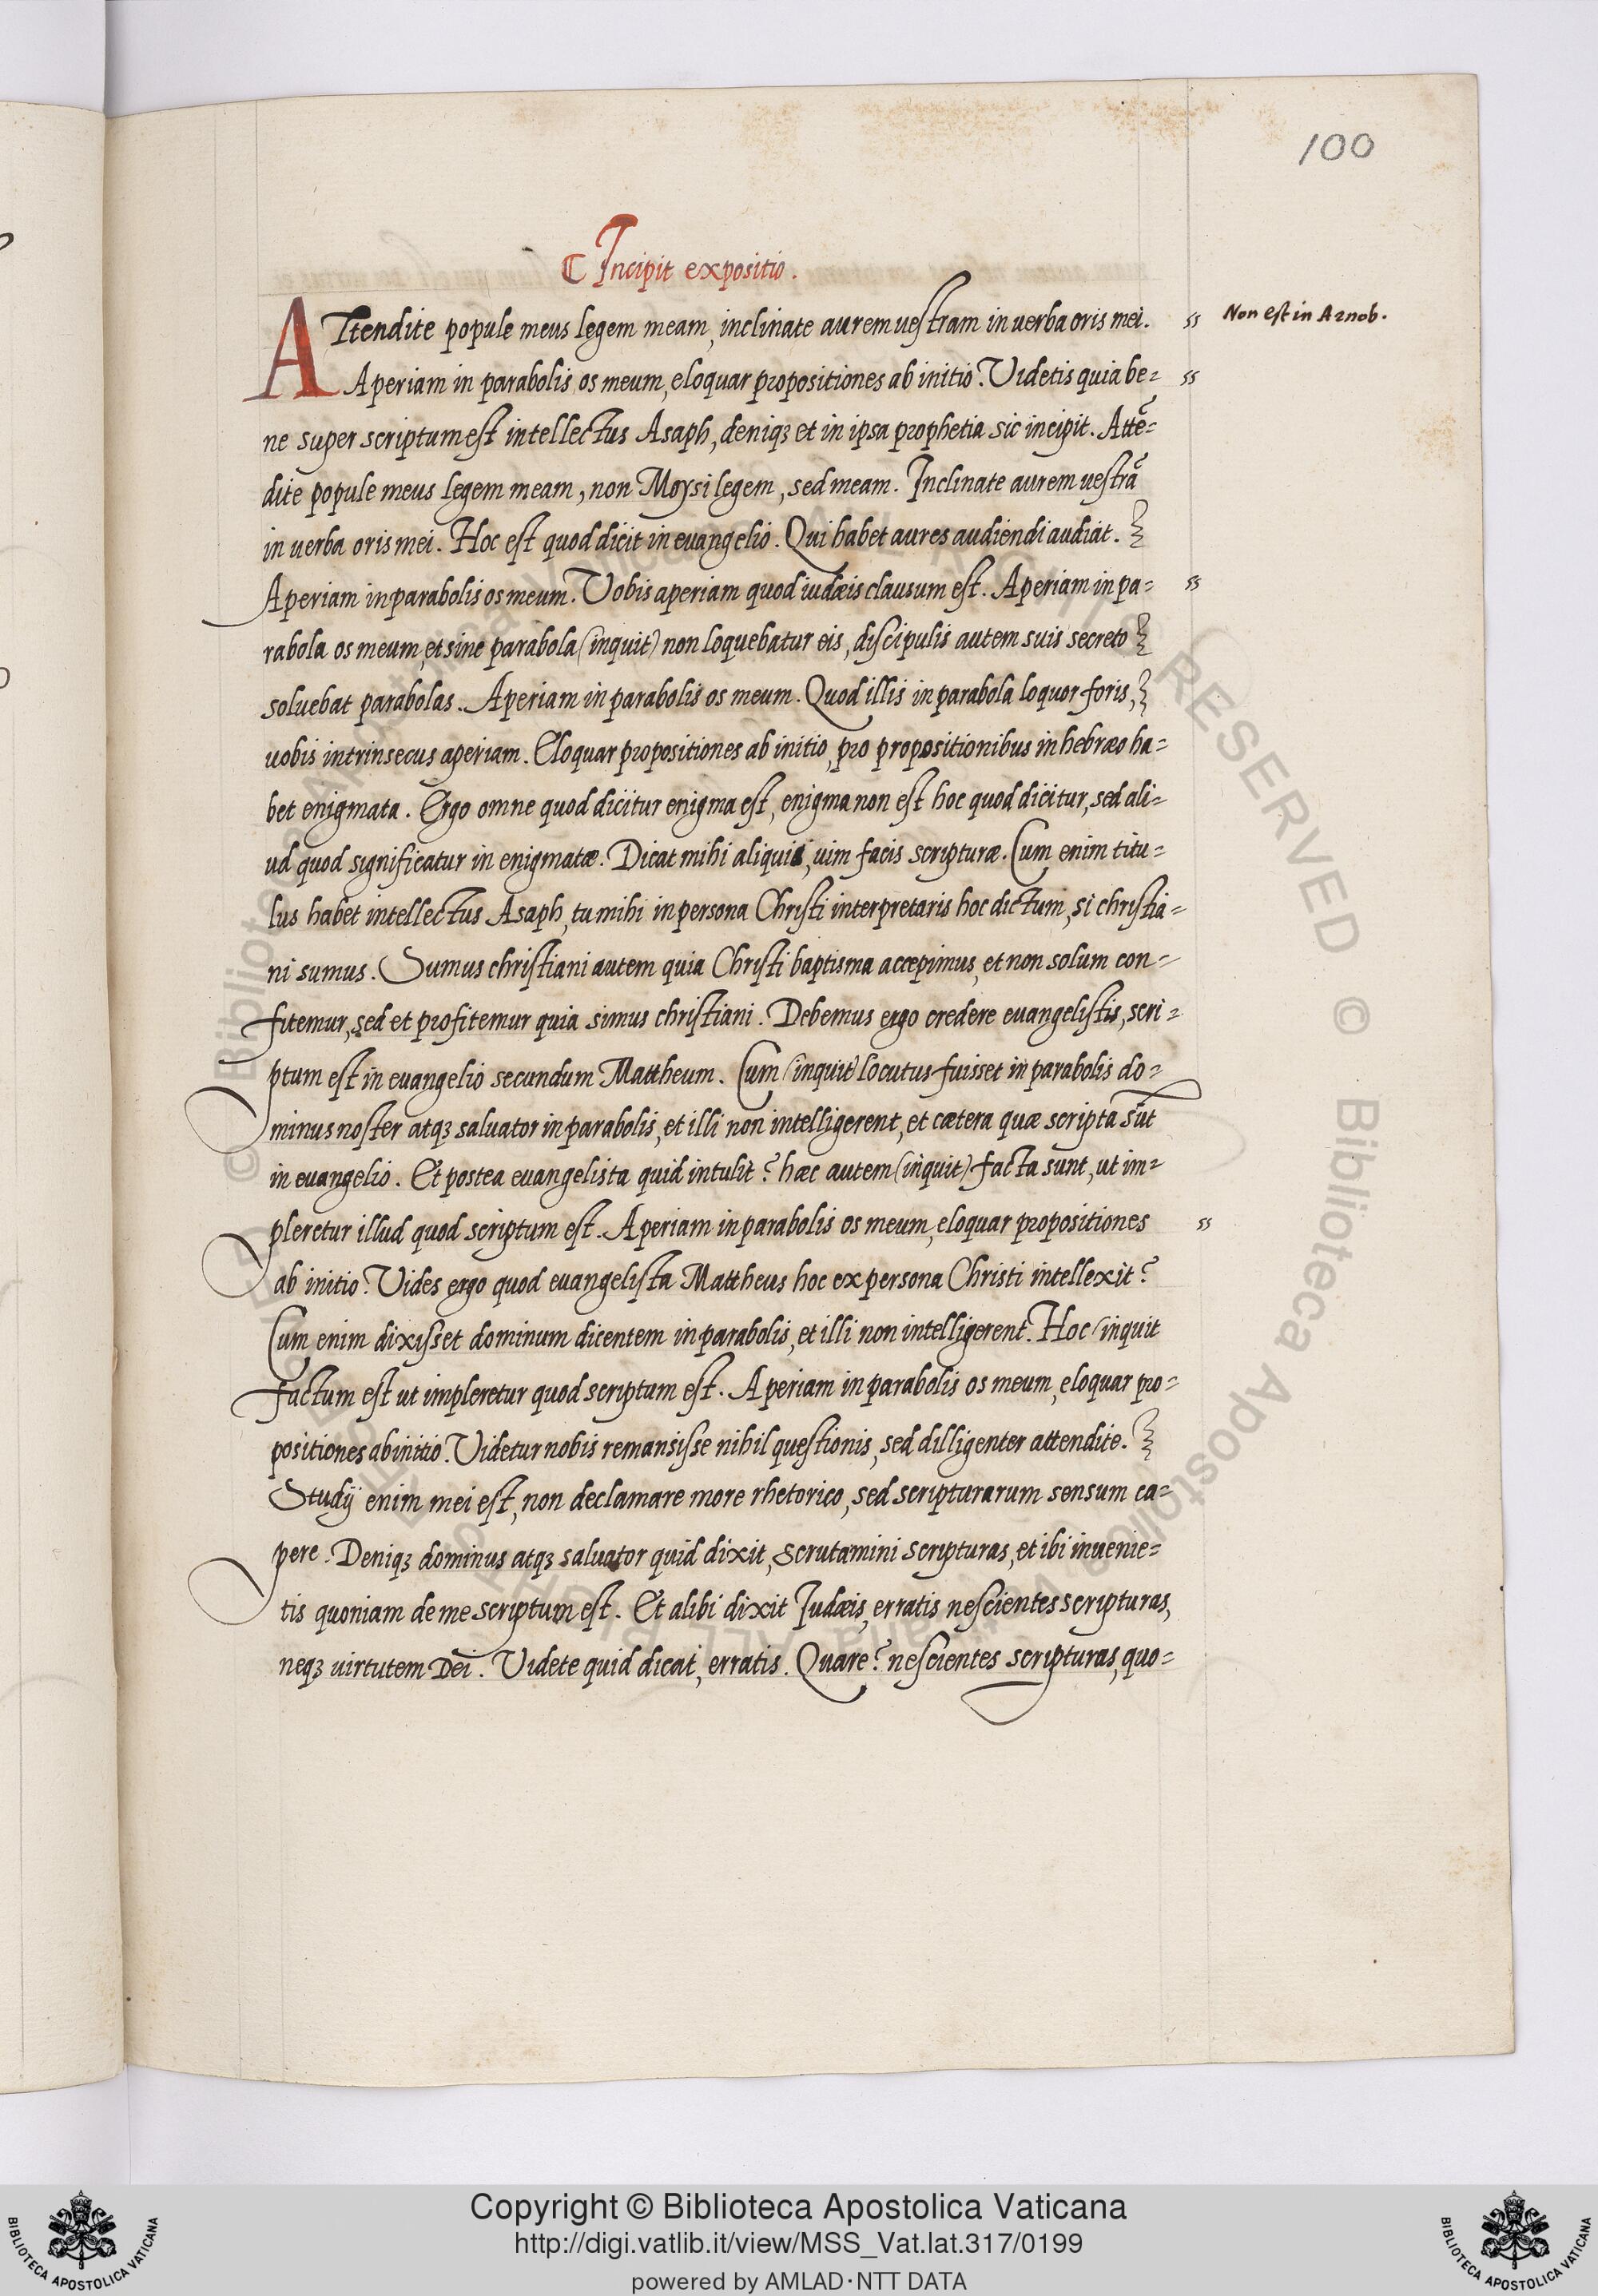 100
Incipit expositio.
ATtendite popule meus legem meam, inclinate aurem uestram in uerba oris mei. Non est in Arnob.
Aperiam in parabolis os meum, eloquar propositiones ab initio. Videtis quia be=
ne super scriptum est intellectus Asaph, deniqꝫ et in ipsa prophetia sic incipit. Attē=
dite popule meus legem meam, non Moysi legem, sed meam. Inclinate aurem uestrā
in uerba oris mei. Hoc est quod dicit in euangelio. Qui habet aures audiendi audiat.
Aperiam in parabolis os meum. Vobis aperiam quod iudæis clausum est. Aperiam in pa=
rabola os meum, et sine parabola (inquit) non loquebatur eis, discipulis autem suis secreto
soluebat parabolas. Aperiam in parabolis os meum. Quod illis in parabola loquor foris,
uobis intrinsecus aperiam. Eloquar propositiones ab initio, pro propositionibus in hebræo ha=
bet enigmata. Ergo omne quod dicitur enigma est, enigma non est hoc quod dicitur, sed ali=
ud quod significatur in enigmatæ. Dicat mihi aliquis, uim facis scripturæ. Cum enim titu=
lus habet intellectus Asaph, tu mihi in persona Christi interpretaris hoc dictum, si christia=
ni sumus. Sumus christiani autem quia Christi baptisma accepimus, et non solum con=
fitemur, sed et profitemur quia simus christiani. Debemus ergo credere euangelistis, scri=
ptum est in euangelio secundum Mattheum. Cum (inquit) locutus fuisset in parabolis do=
minus noster atqꝫ saluator in parabolis, et illi non intelligerent, et cætera quæ scripta sūt
in euangelio. Et postea euangelista quid intulit? hæc autem (inquit) facta sunt, ut im=
pleretur illud quod scriptum est. Aperiam in parabolis os meum, eloquar propositiones
ab initio. Vides ergo quod euangelista Mattheus hoc ex persona Christi intellexit?
Cum enim dixisset dominum dicentem in parabolis, et illi non intelligerent. Hoc (inquit
factum est ut impleretur quod scriptum est. Aperiam in parabolis os meum, eloquar pro=
positiones ab initio. Videtur nobis remansisse nihil questionis, sed dilligenter attendite.
Studij enim mei est, non declamare more rhetorico, sed scripturarum sensum ca=
pere. Deniqꝫ dominus atqꝫ saluator quid dixit, Scrutamini scripturas, et ibi inuenie=
tis quoniam de me scriptum est. Et alibi dixit Iudæis, erratis nescientes scripturas,
neqꝫ uirtutem Dei. Videte quid dicat, erratis. Quare? nescientes scripturas, quo=
Copyright © Biblioteca Apostolica Vaticana
http://digi.vatlib.it/view/MSS_Vat.lat.317/0199
powered by AMLAD·NTT DATA
BIBLIOTECA APOSTOLICA VATICANA
BIBLIOTECA APOSTOLICA VATICANA